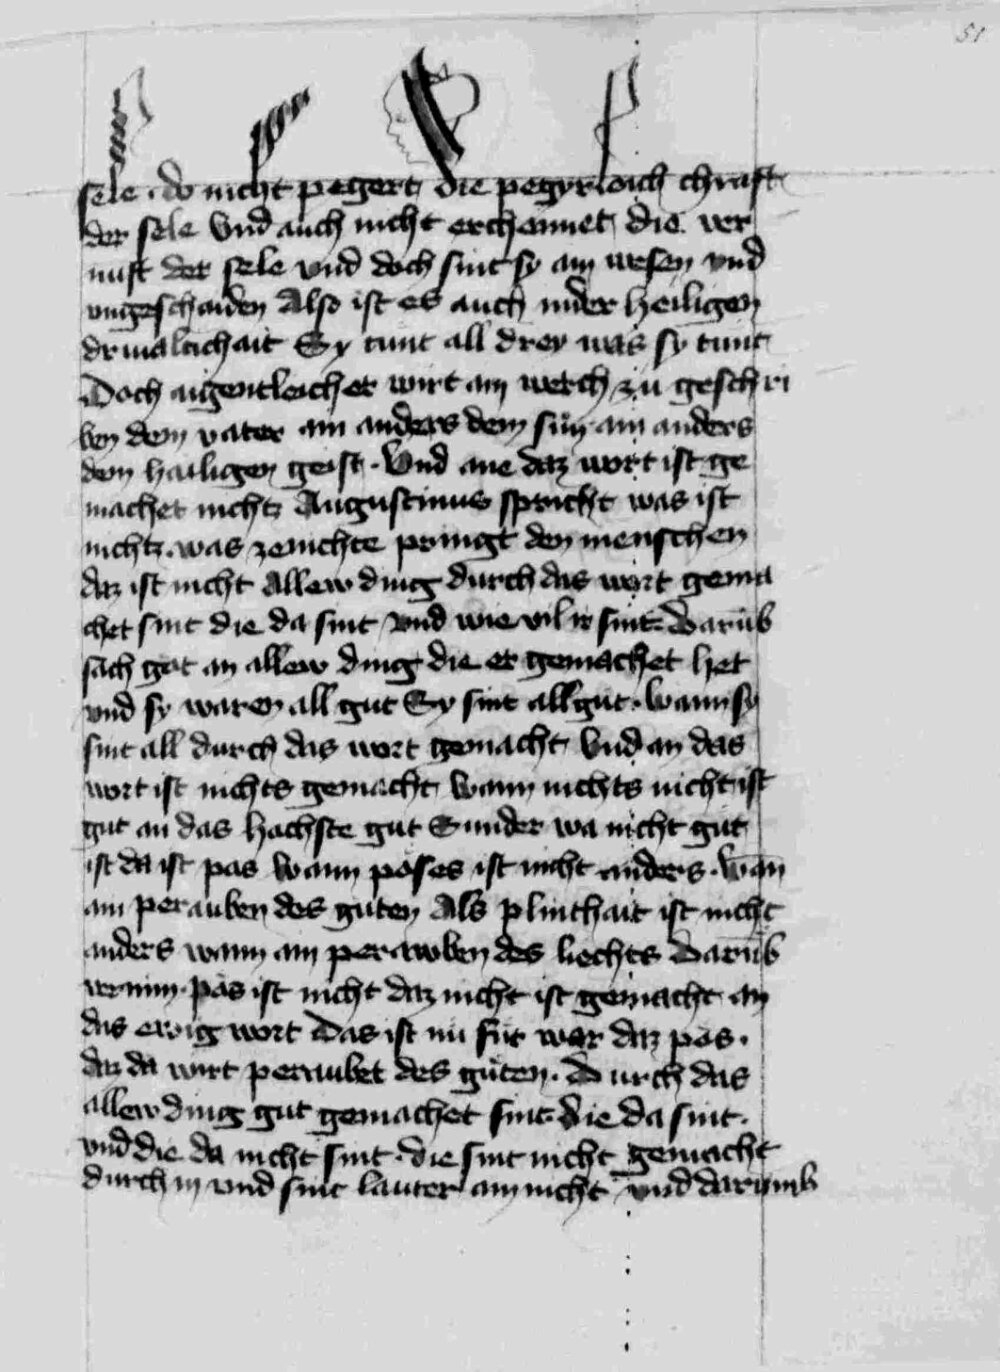 51
sele · do nicht pegert die pegyrleich chraft
der sele Vnd auch nicht erchennet die ver
nuft der sele vnd doch sint sy ain wesen vnd
vngeschaiden Also ist es auch inder heiligen
driualtichait Sy tunt all drey was sy tunt
Doch aigentleicher wirt ain werch zu geschri
ben dem vater ain anders dem sun ain anders
dem hailigen geist · Vnd ane daz wort ist ge
machet nichtz Augustinus spricht was ist
nichtz · was zenichte pringt den menschen
daz ist nicht Allew ding durch das wort gema
chet sint die da sint vnd wie vil ir sint · Darūb
sach got an allew ding die er gemachet het
vnd sy waren all gut Sy sint all gut · wann sy
sint all durch das wort gemacht Vnd an das
wort ist nichts gemacht wann nichts nicht ist
gut an das hachste gut Sunder wa nicht gut
ist da ist pas wann poses ist nicht anders · wan̄
ain perauben des guten Als plinthait ist nicht
anders wann ain perawben des liechts Darūb
vernim · pas ist nicht daz nicht ist gemacht an
das ewig wort Das ist nu fur war daz pos ·
daz da wirt peraubet des guten · Durch das
allew ding gut gemachet sint · die da sint ·
vnd die da nicht sint · die sint nicht gemacht
durch in vnd sint lauter ain nicht vnd darumb